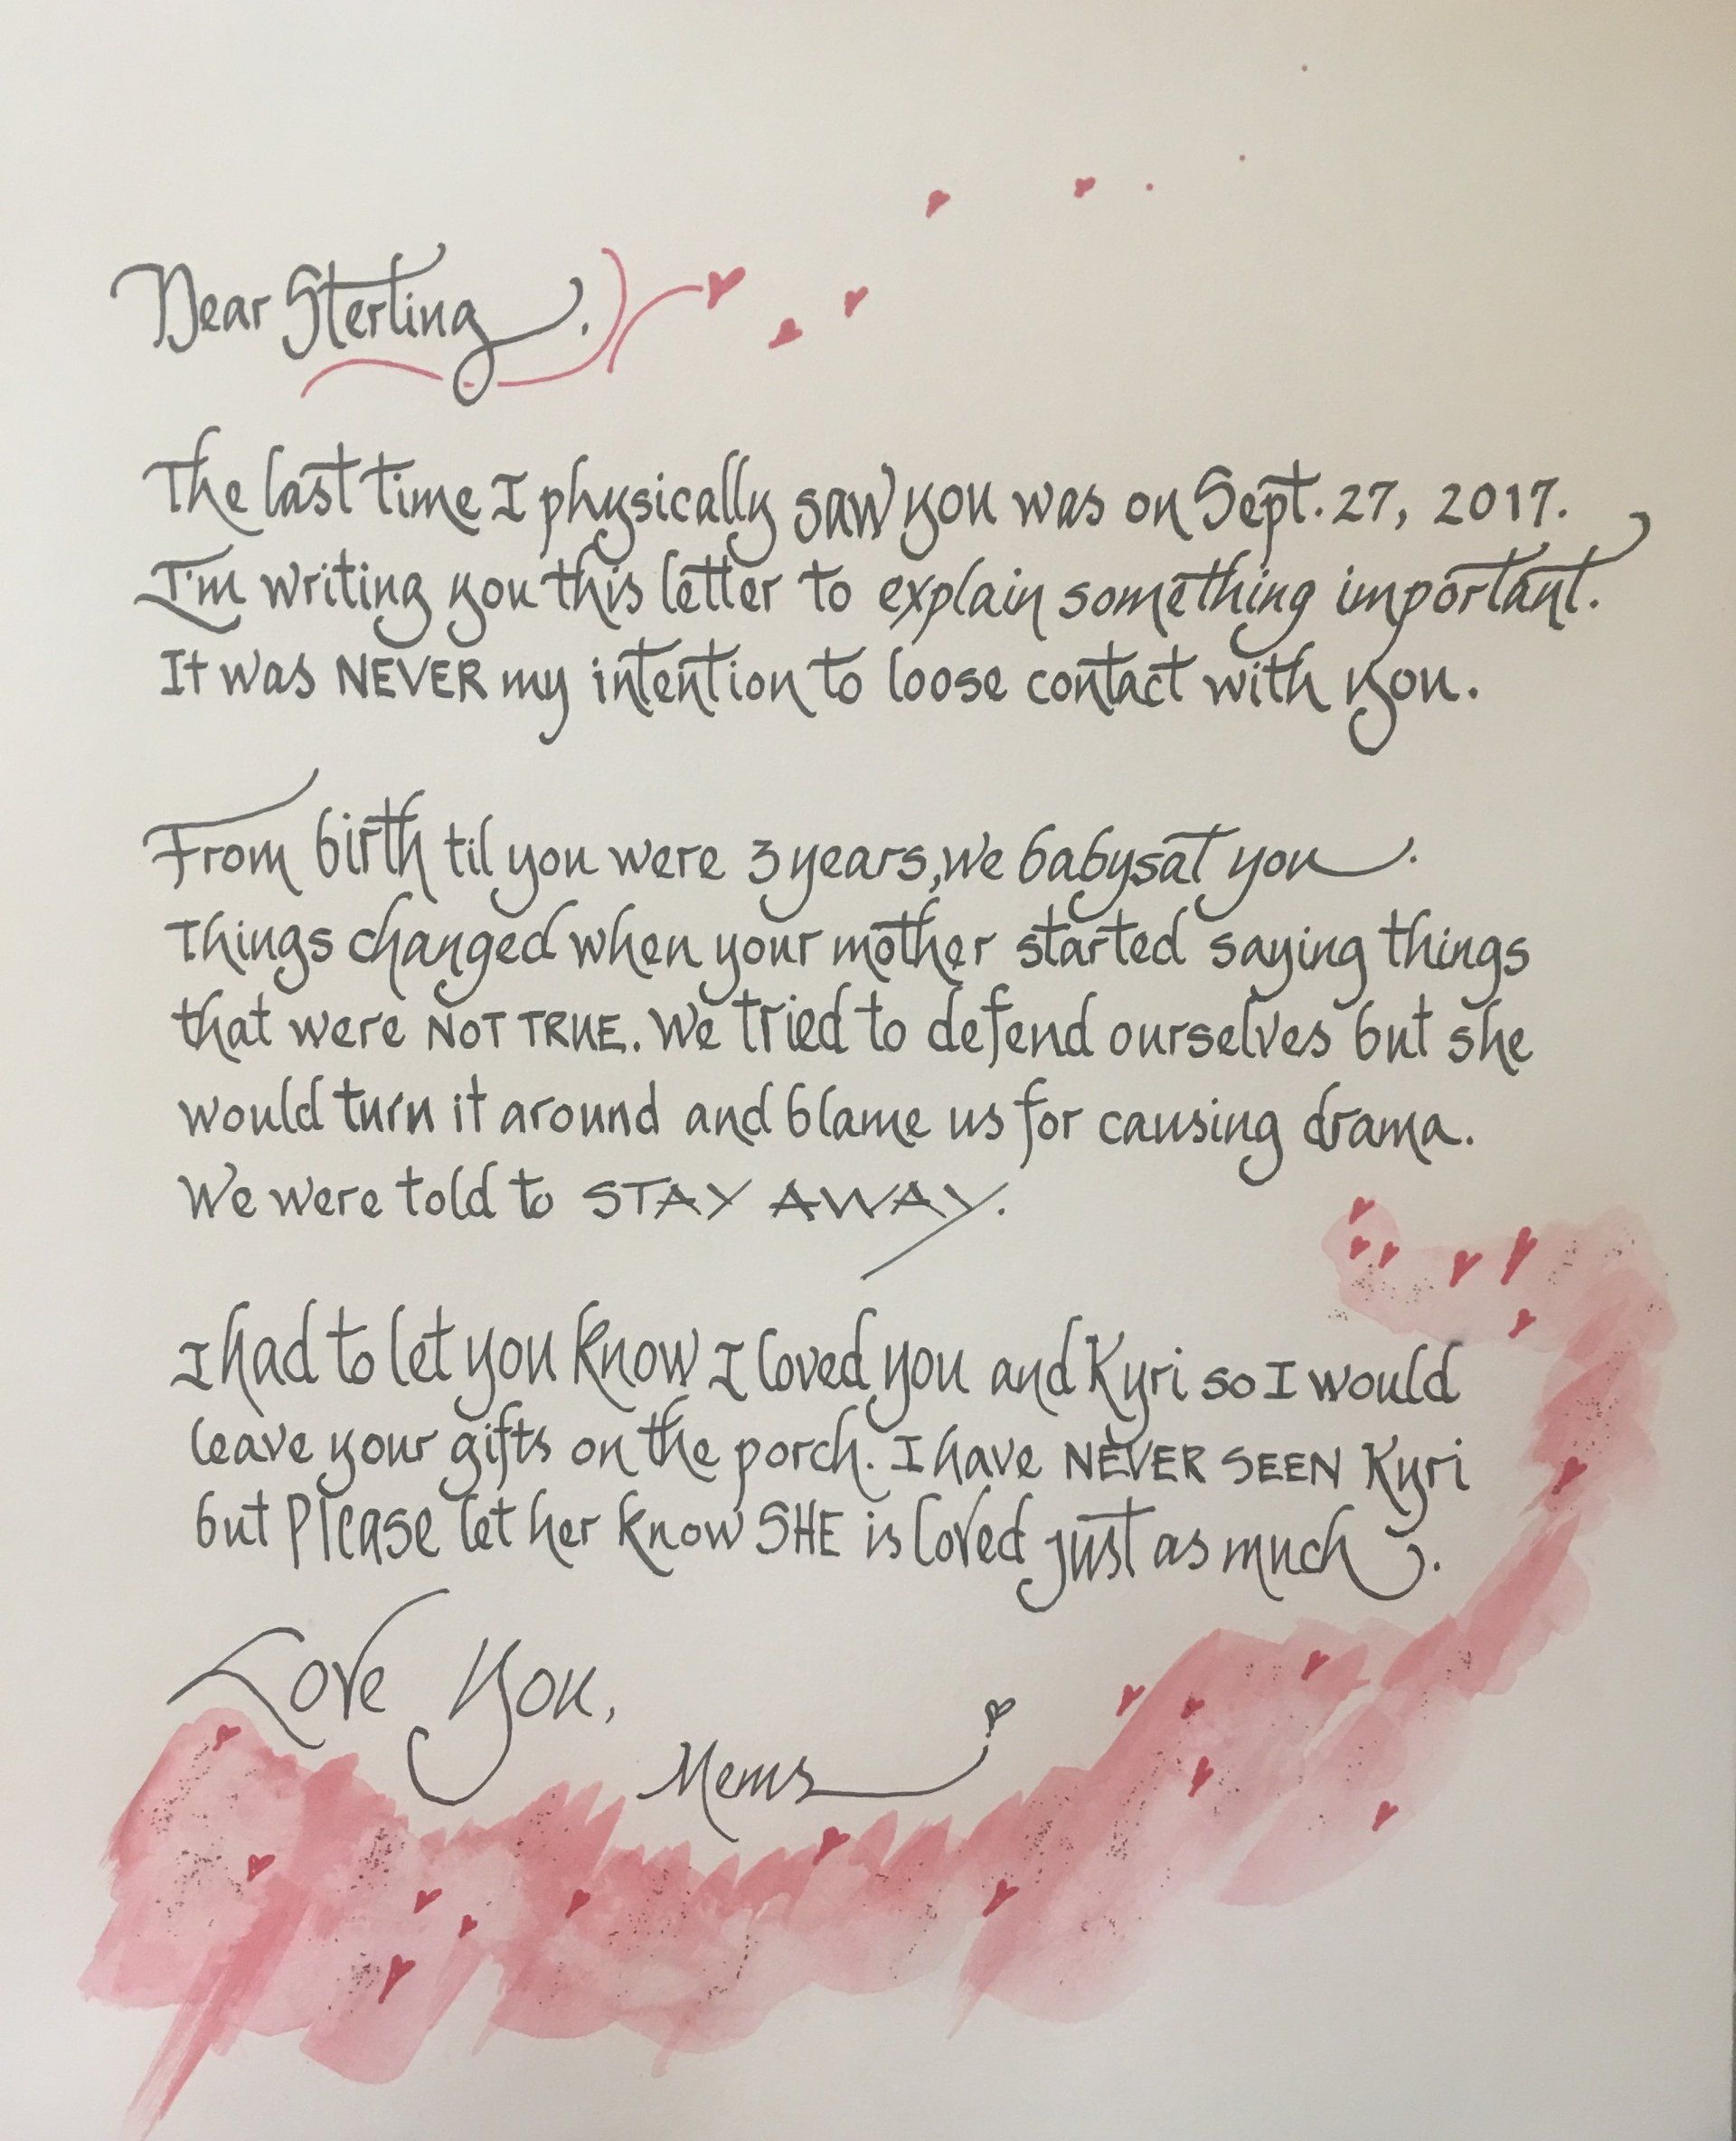 Dear Sterling.
The last time I physically saw you was on Sept. 27, 2017.
I'm writing you this letter to explain something important.
It was NEVER my intention to loose contact with you.
From birth til you were 3 years, we babysat you.
Things changed when your mother started saying things
that were NOT TRUE. We tried to defend ourselves but she
would turn it around and blame us for causing drama.
We were told to STAY AWAY.
I had to let you know I loved you and Kyri so I would
leave your gifts on the porch. I have NEVER SEEN Kyri
but Please let her know SHE is loved just as much.
Love You,
Mems